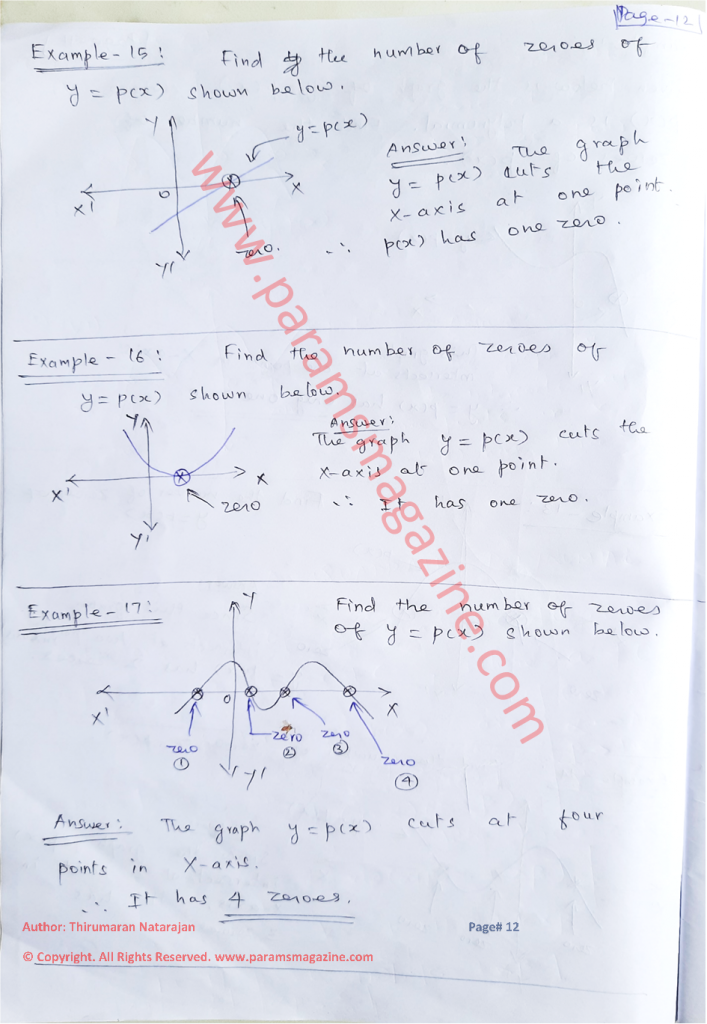 Page-12
Example-15: Find the number of zeroes of
y = p(x) shown below.
Y
y=p(x)
X'
O
X
Y'
zero.
Answer: The graph
y = p(x) cuts the
X-axis at one point.
∴ p(x) has one zero.
Example-16: Find the number of zeroes of
y=p(x) shown below.
Y
X'
X
Y'
zero
Answer:
The graph y=p(x) cuts the
X-axis at one point.
∴ It has one zero.
Example-17:
Find the number of zeroes
of y = p(x) shown below.
Y
O
X'
X
zero
①
zero
②
zero
③
zero
④
Y'
Answer: The graph y=p(x) cuts at four
points in X-axis.
∴ It has 4 zeroes.
www.paramsmagazine.com
Author: Thirumaran Natarajan
Page# 12
© Copyright. All Rights Reserved. www.paramsmagazine.com